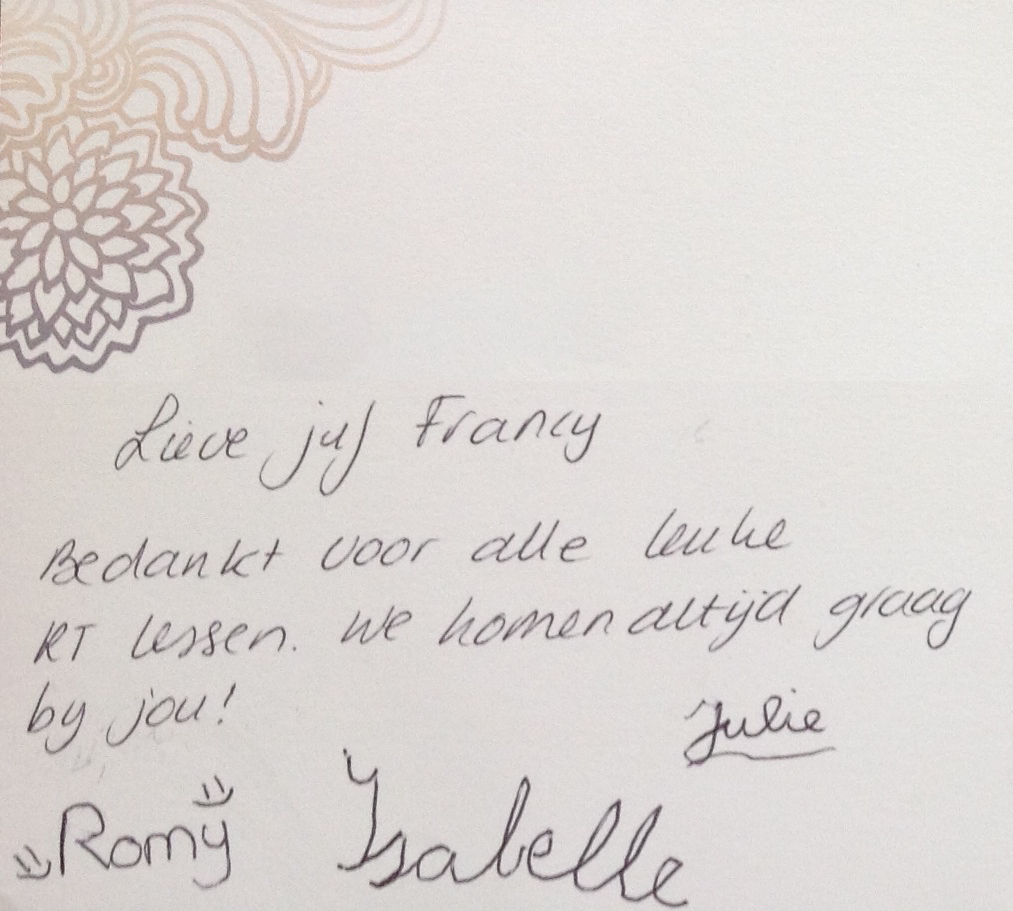 Lieve juf Francy
Bedankt voor alle leuke
RT lessen. We komen altijd graag
by jou!
Julie
Romy
Isabelle